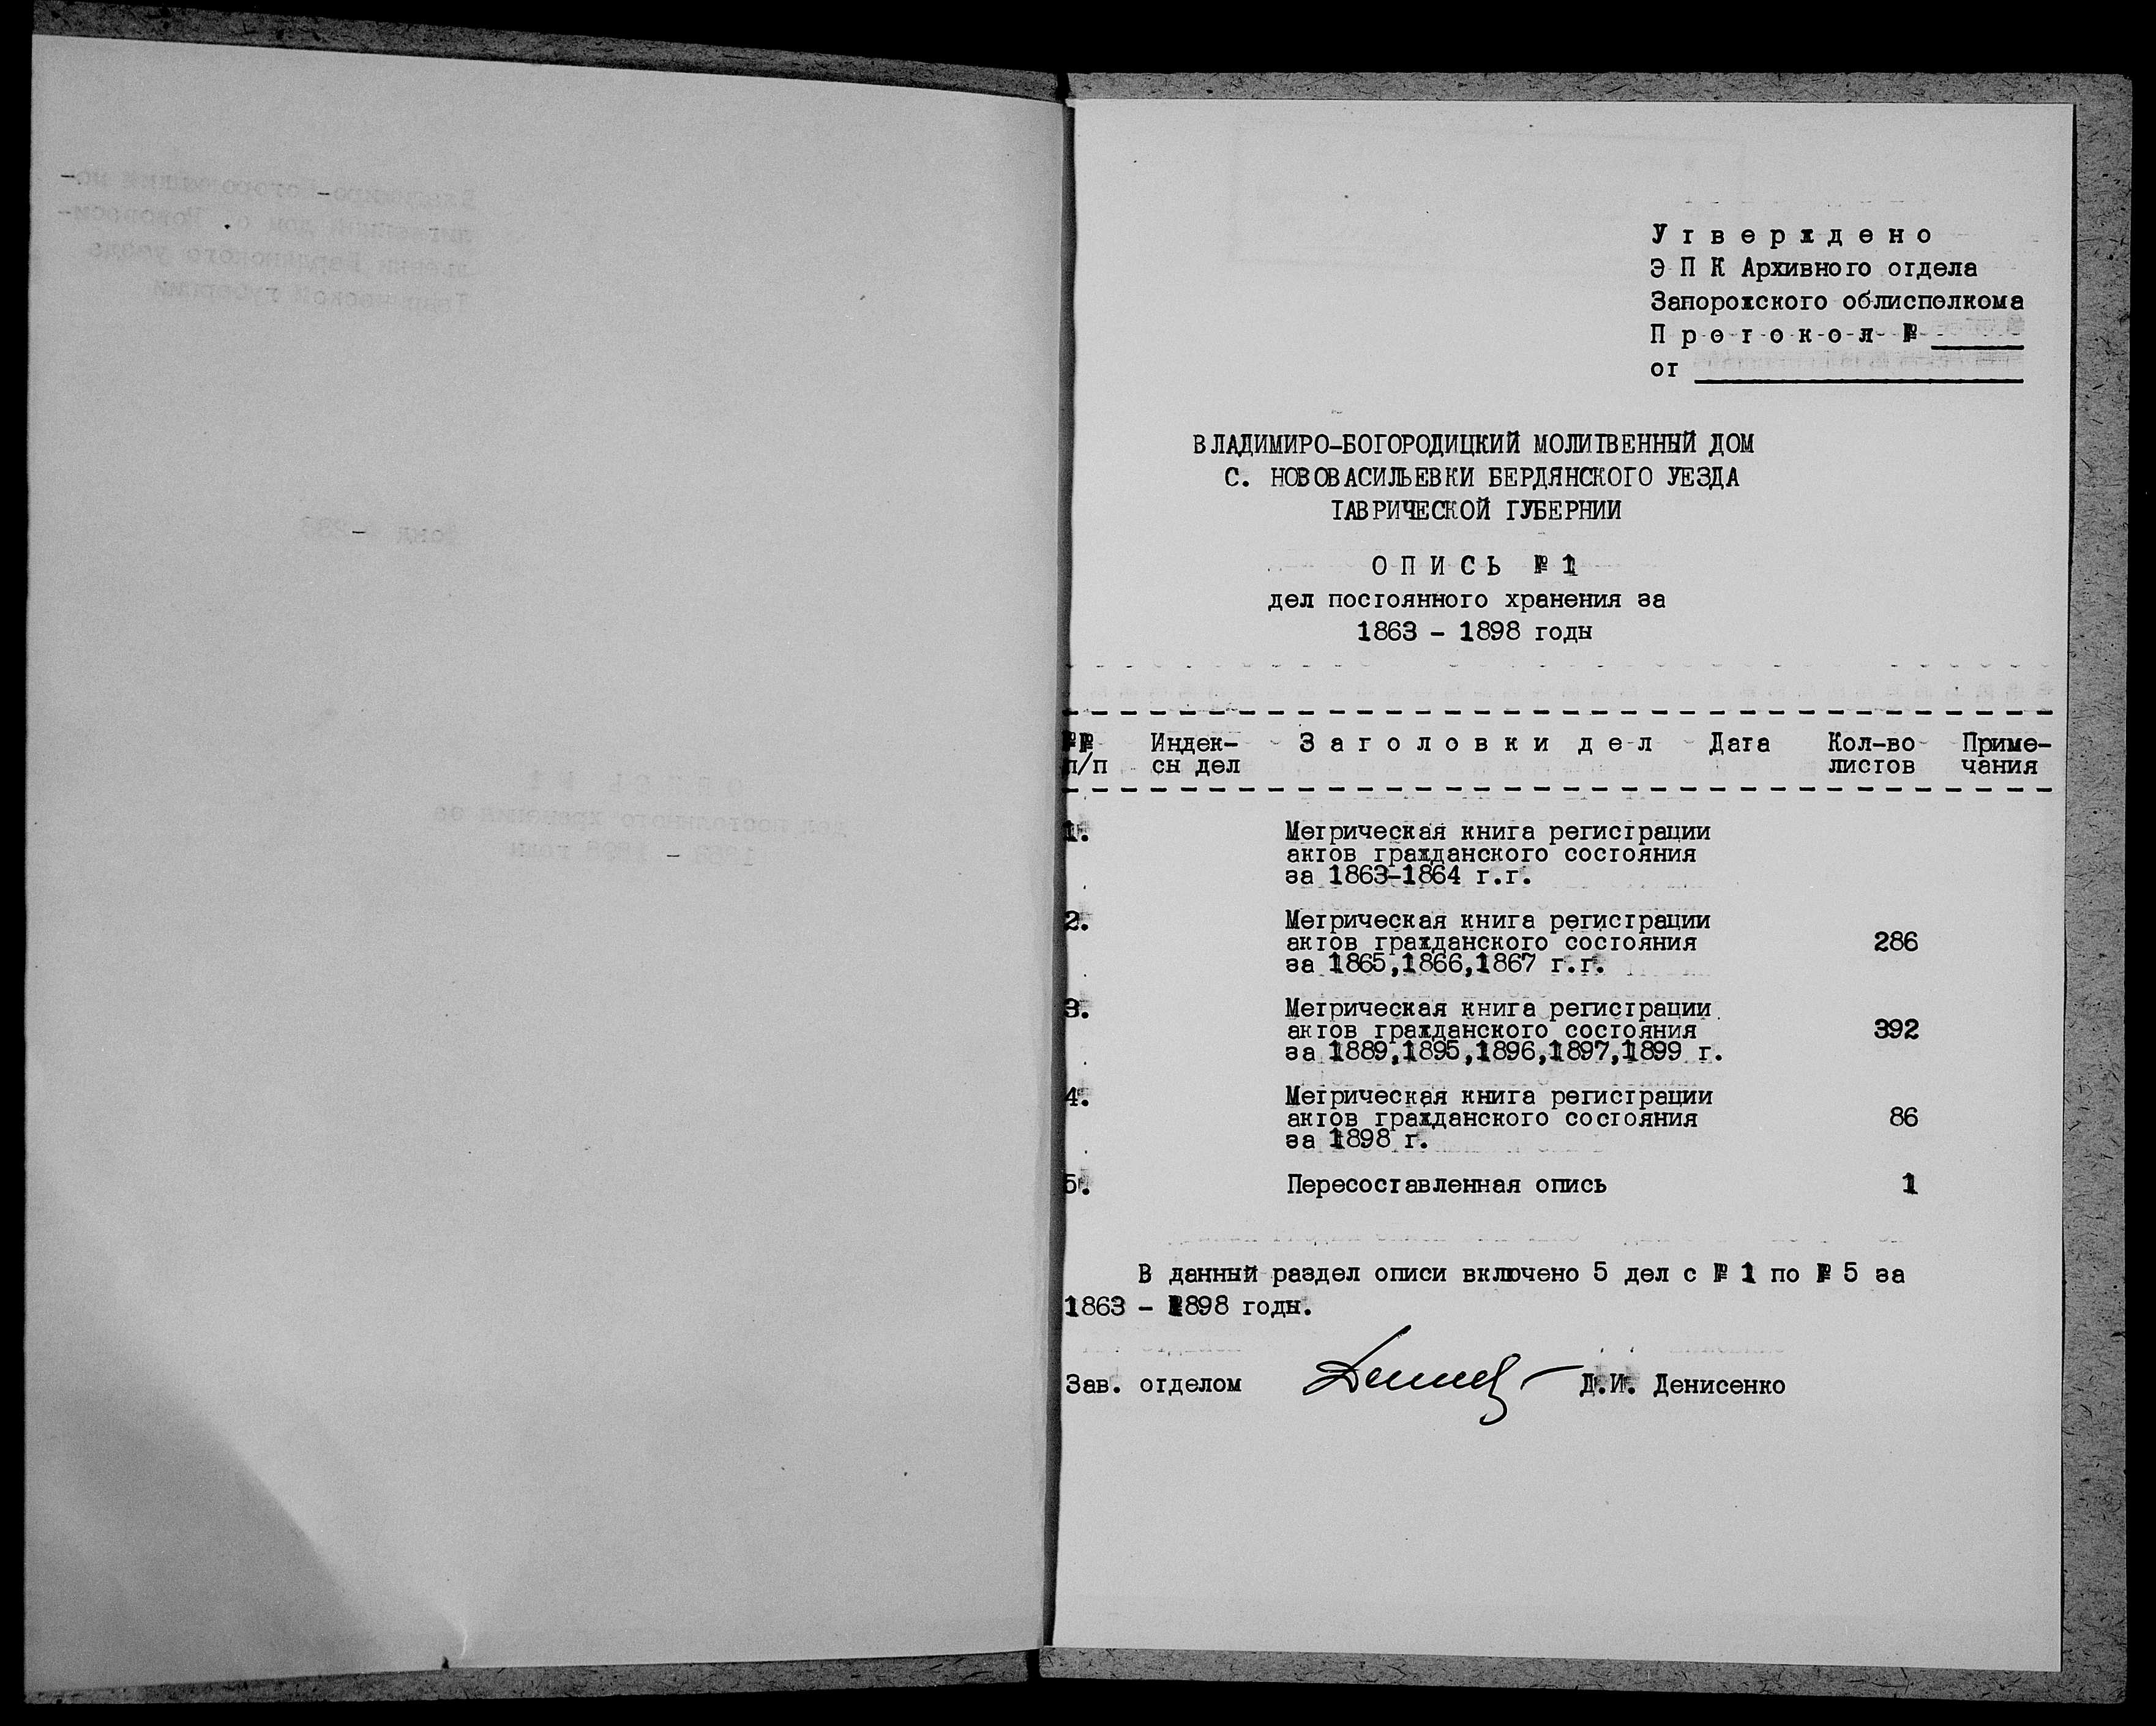 Утверждено
ЭПК Архивного отдела
Запорожского облисполкома
Протокол №
от
ВЛАДИМИРО-БОГОРОДИЦКИЙ МОЛИТВЕННЫЙ ДОМ
С. НОВОВАСИЛЬЕВКИ БЕРДЯНСКОГО УЕЗДА
ТАВРИЧЕСКОЙ ГУБЕРНИИ
ОПИСЬ № 1
дел постоянного хранения за
1863 - 1898 годы
№№ Индек- Заголовки дел Дата Кол-во Приме-
п/п сы дел листов чания
1. Метрическая книга регистрации
актов гражданского состояния
за 1863-1864 г.г.
2. Метрическая книга регистрации
актов гражданского состояния 286
за 1865,1866,1867 г.г.
3. Метрическая книга регистрации
актов гражданского состояния 392
за 1889,1895,1896,1897,1899 г.
4. Метрическая книга регистрации
актов гражданского состояния 86
за 1898 г.
5. Пересоставленная опись 1
В данный раздел описи включено 5 дел с № 1 по № 5 за
1863 - 1898 годы.
Зав. отделом Д.И. Денисенко